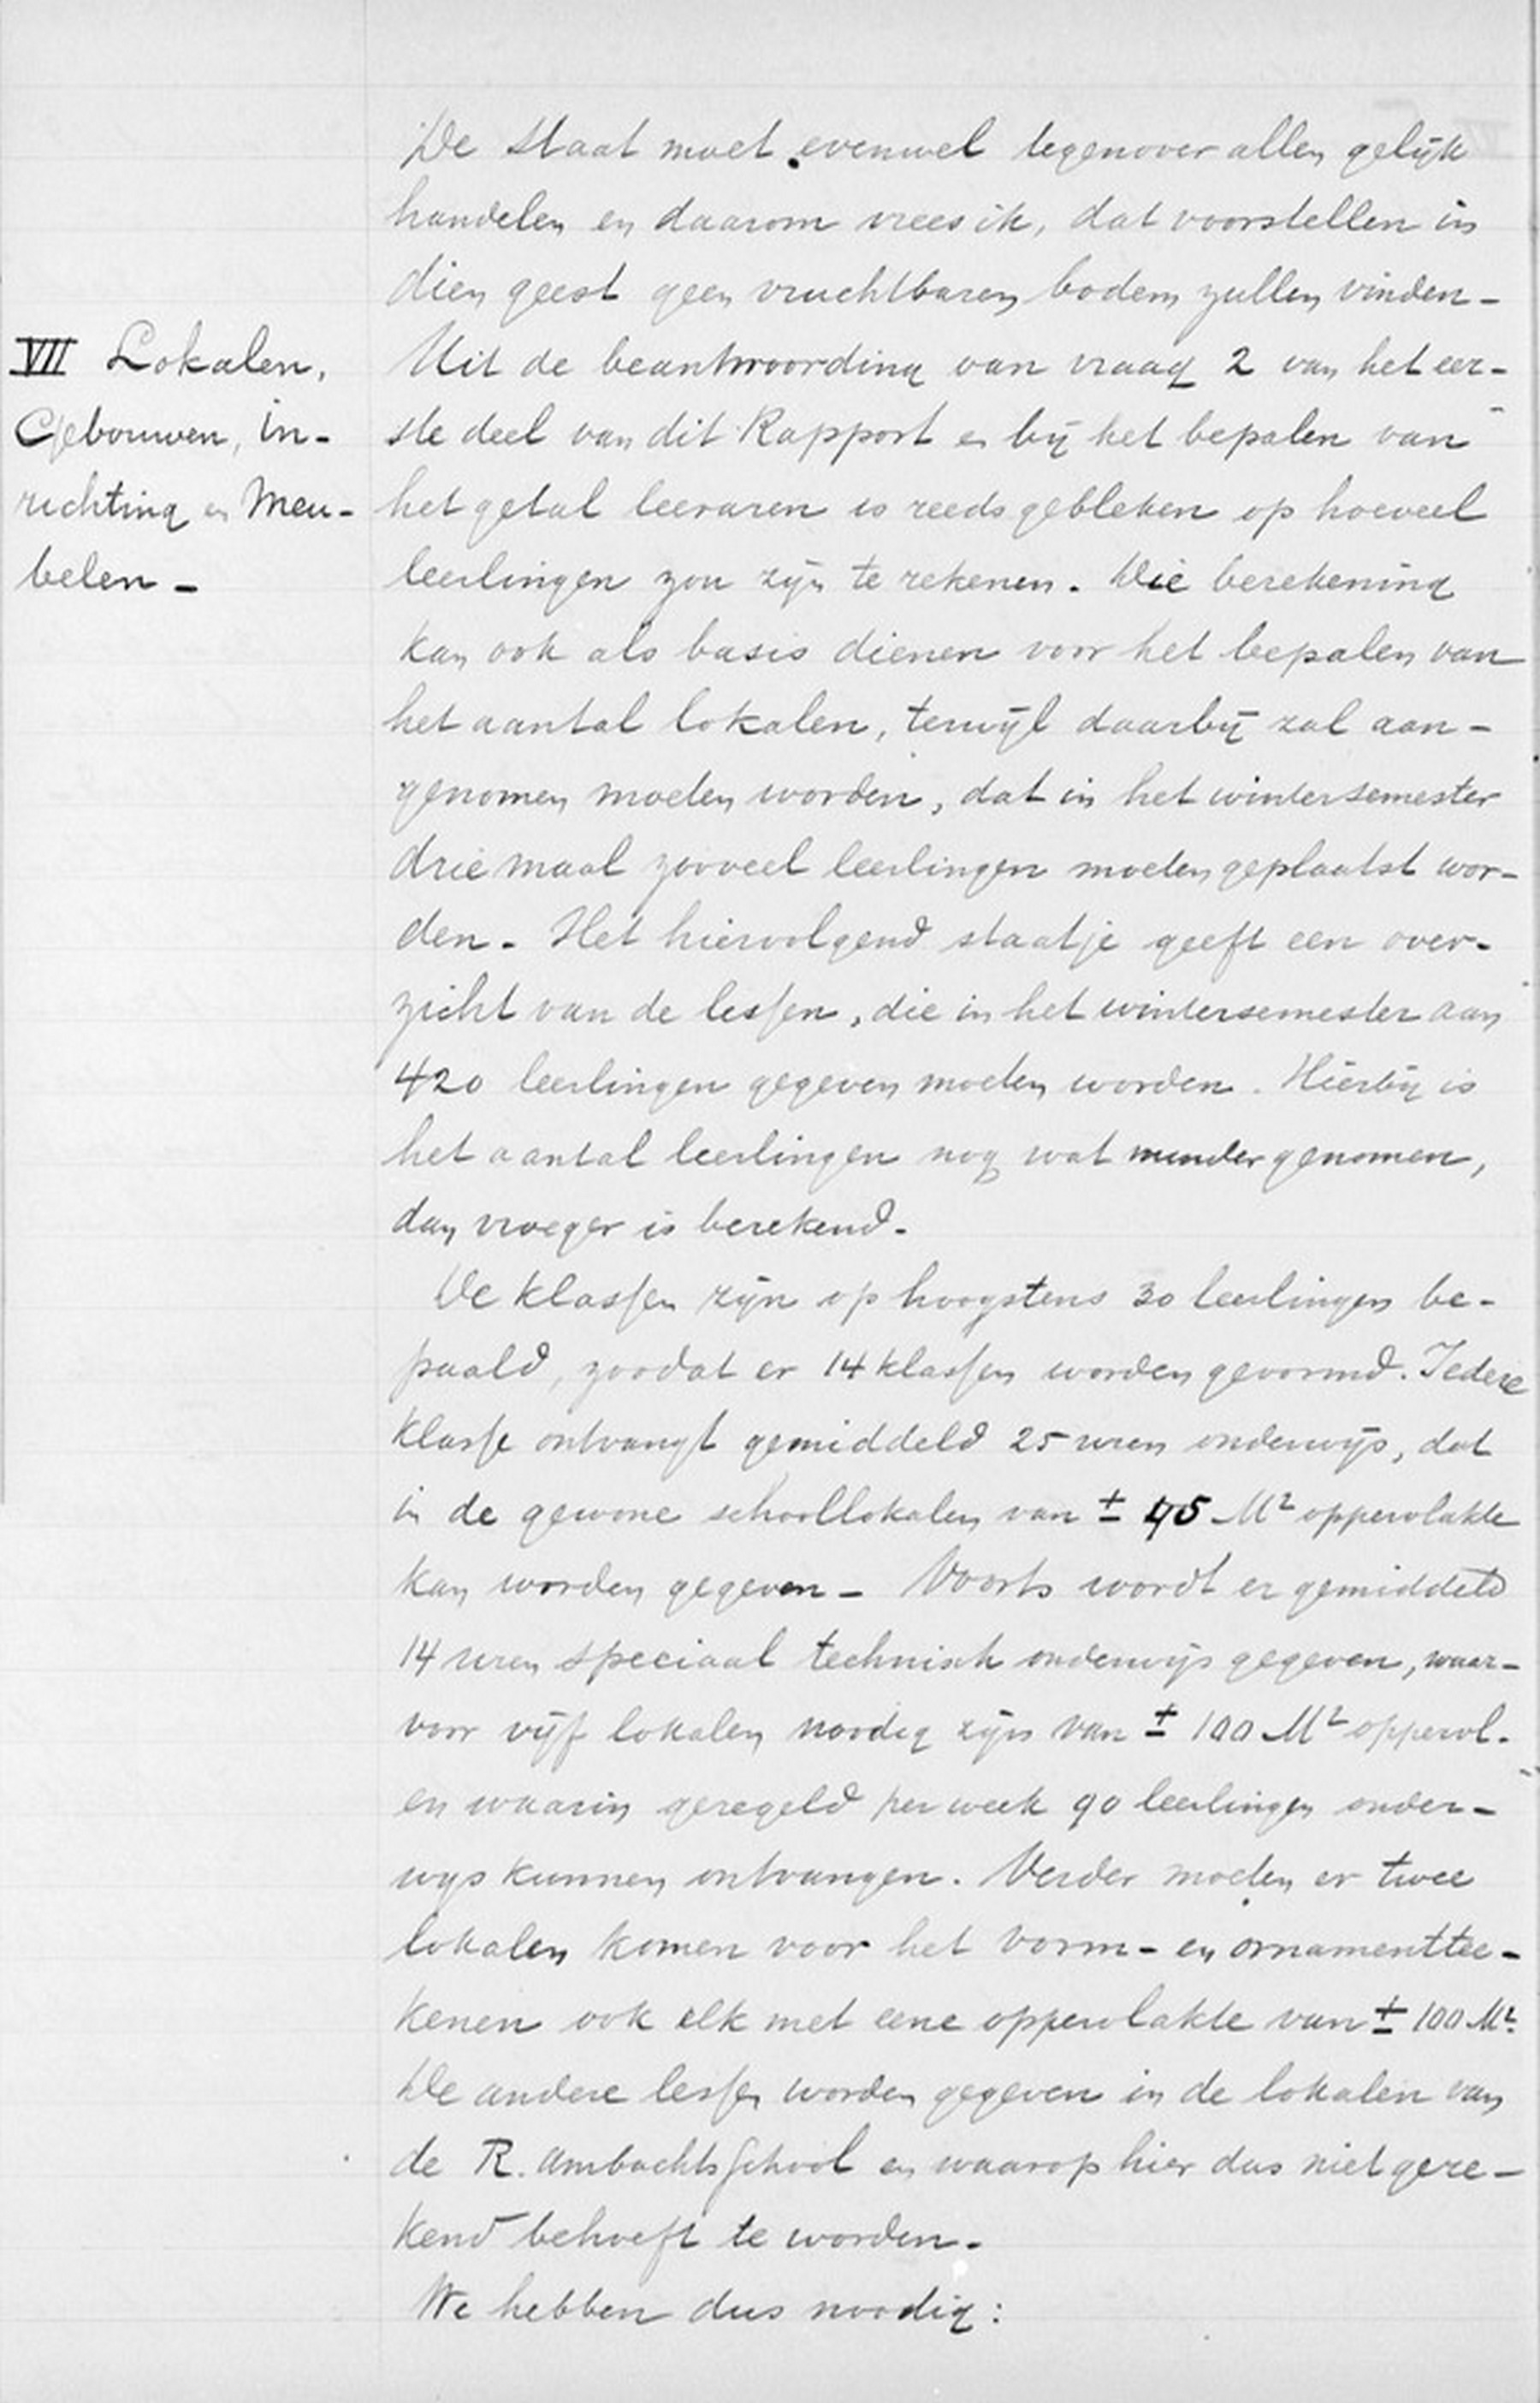 De Staat moet evenwel tegenover allen gelijk
handelen en daarom vrees ik, dat voorstellen in
dien geest geen vruchtbaren bodem zullen vinden -
VII Lokalen,
Gebouwen, in-
richting en Meu-
belen -
Uit de beantwoording van vraag 2 van het eer-
ste deel van dit Rapport en bij het bepalen van
het getal leeraren is reeds gebleken op hoeveel
leerlingen zou zijn te rekenen. Die berekening
kan ook als basis dienen voor het bepalen van
het aantal lokalen, terwijl daarbij zal aan-
genomen moeten worden, dat in het wintersemester
driemaal zooveel leerlingen moeten geplaatst wor-
den. Het hiervolgend staatje geeft een over-
zicht van de lessen, die in het wintersemester aan
420 leerlingen gegeven moeten worden. Hierbij is
het aantal leerlingen nog wat minder genomen,
dan vroeger is berekend.
De klassen zijn op hoogstens 30 leerlingen be-
paald, zoodat er 14 klassen worden gevormd. Iedere
klasse ontvangt gemiddeld 25 uren onderwijs, dat
in de gewone schoollokalen van ± 45 M² oppervlakte
kan worden gegeven - Voorts wordt er gemiddeld
14 uren speciaal technisch onderwijs gegeven, waar-
voor vijf lokalen noodig zijn van ± 100 M² oppervl.
en waarin geregeld per week 90 leerlingen onder-
wijs kunnen ontvangen. Verder moeten er twee
lokalen komen voor het vorm- en ornamenttee-
kenen ook elk met eene oppervlakte van ± 100 M².
De andere lessen worden gegeven in de lokalen van
de R. Ambachtsschool en waarop hier dus niet gere-
kend behoeft te worden.
We hebben dus noodig: